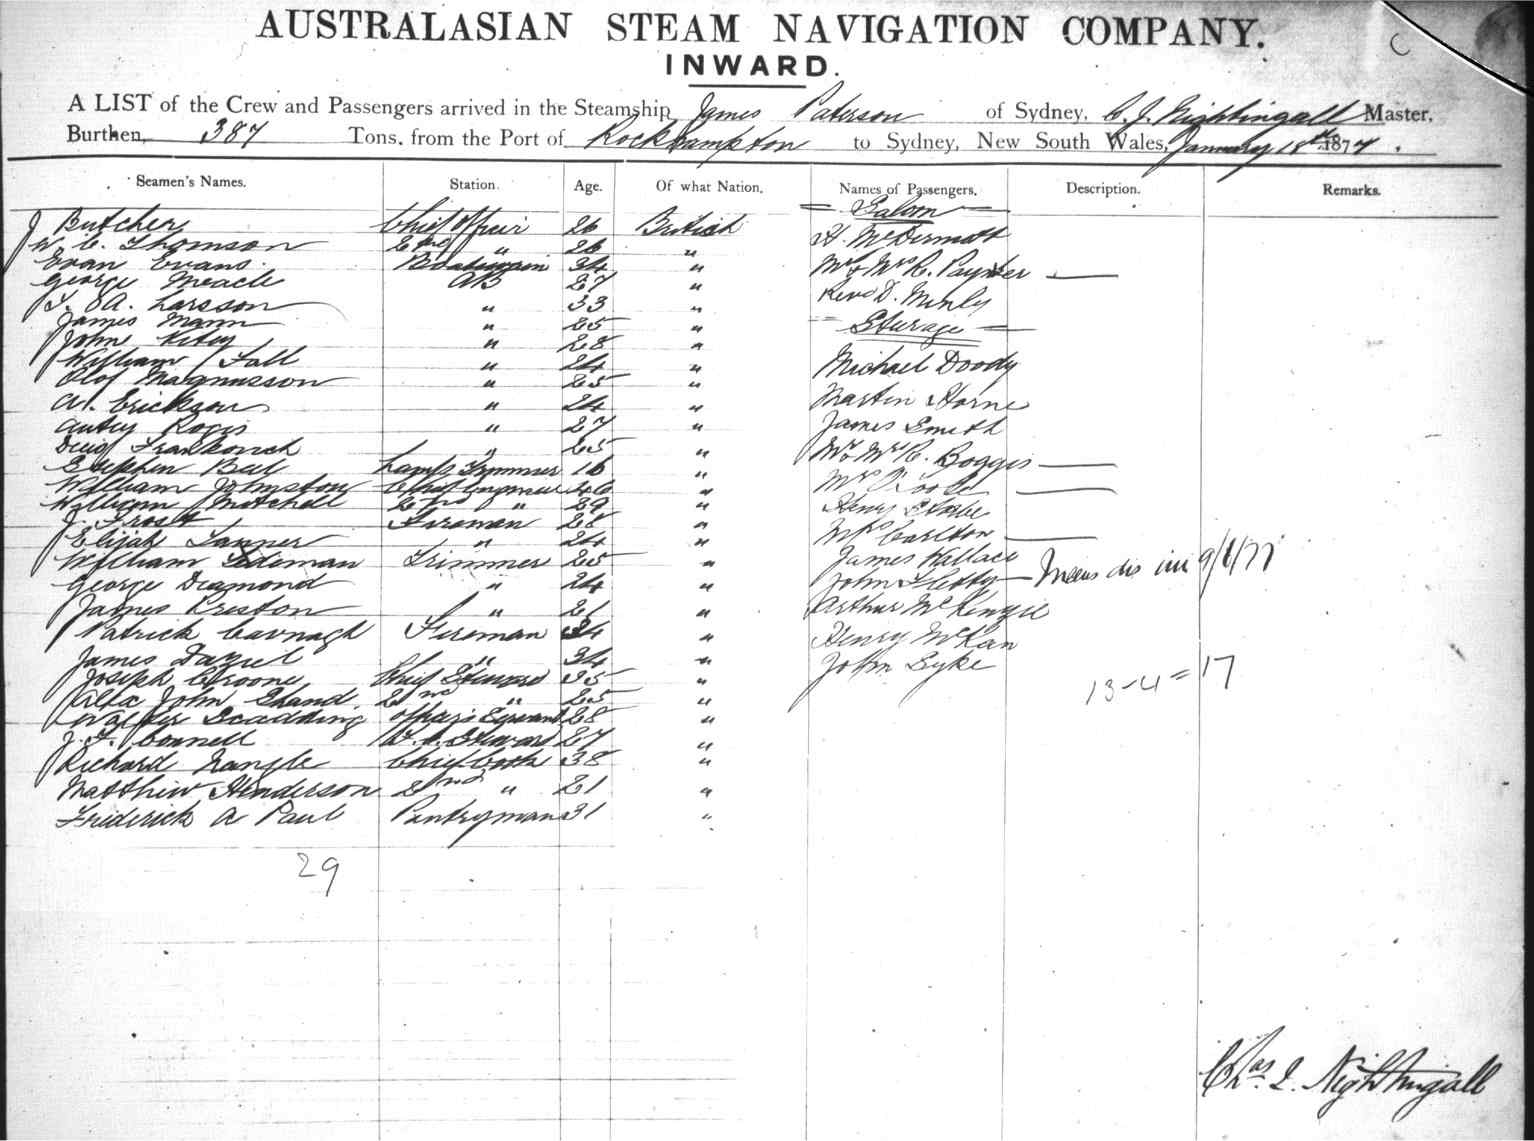 C
AUSTRALASIAN STEAM NAVIGATION COMPANY.
INWARD.
A LIST of the Crew and Passengers arrived in the Steamship James Paterson of Sydney, C. J. Nightingall Master,
Burthen, 387 Tons, from the Port of Rockhampton to Sydney, New South Wales, January 18th 1877.
Seamen's Names. Station. Age. Of what Nation. Names of Passengers. Description. Remarks.
Saloon
J Butcher Chief Officer 26 British H. McDermott
W. C. Thomson 2nd " 26 "
Evan Evans Boatswain 34 " Mr & Mrs R. Paynter
George Meacle AB 27 "
A. Larsson " 33 " Revd D.
James Mann " 25 " Sturage
John " 28 "
William Fall " 24 " Michael Doody
Olof Magnusson " 25 "
A. Erickson " 24 " Martin Horne
Rogis " 27 " James Smith
" 25 "
Stephen Bail Lamp Trimmer 16 " Mr & Mrs C. Boggis
William Johnston Chief Engineer 46 " Mrs
William Mitchell 2nd " 29 " Henry
J. Frost Fireman 28 "
Elijah Tanner " 24 " Mrs Carlton
William Trimmer 25 " James Wallace
George Diamond " 24 " John 9/1/77
James Kreston " 21 " Arthur McKenzie
Patrick Cavnagh Fireman 34 " Henry McKan
James Dazuel " 34 " John Syke
Joseph Croone Chief Steward 35 " 13-4=17
John Shand 2nd " 25 "
Walter Scadding Officers Servant 28 "
J. F. Connell Steward 27 "
Richard Nangle Chief Cook 38 "
Matthew Henderson 2nd " 21 "
Friderick A Paul Pantryman 31 "
29
Chas J. Nightingall